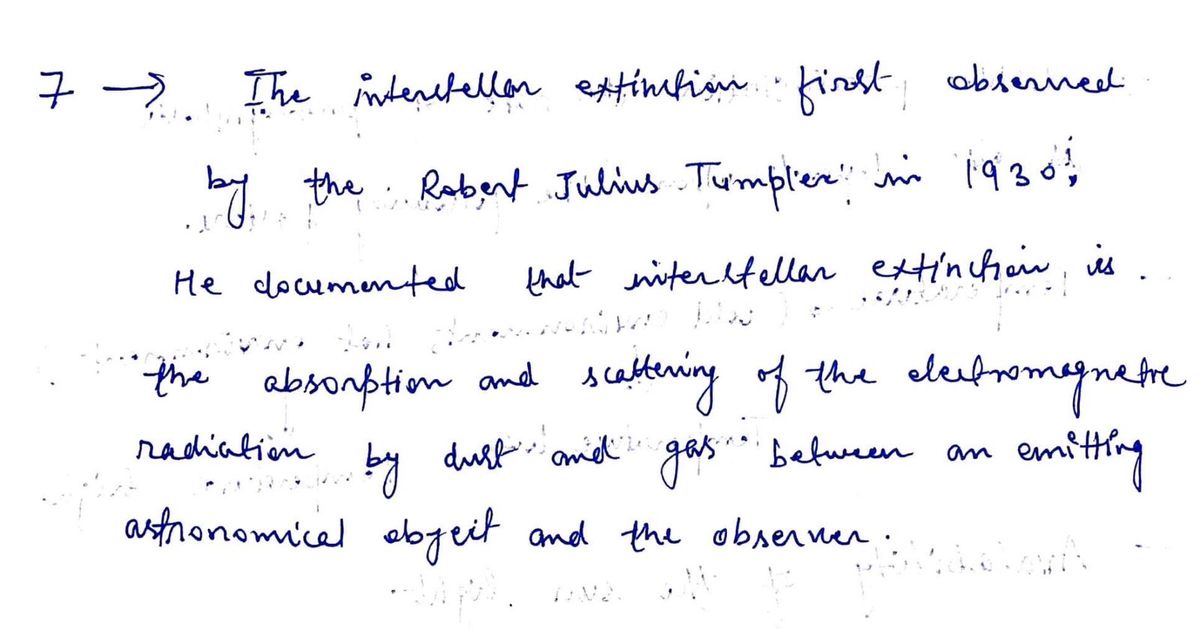 7 → The interstellar extinction first observed
by the Robert Julius Tumpler in 1930;
He documented that interstellar extinction is
the absorption and scattering of the electromagnetic
radiation by dust and gas between an emitting
astronomical object and the observer.